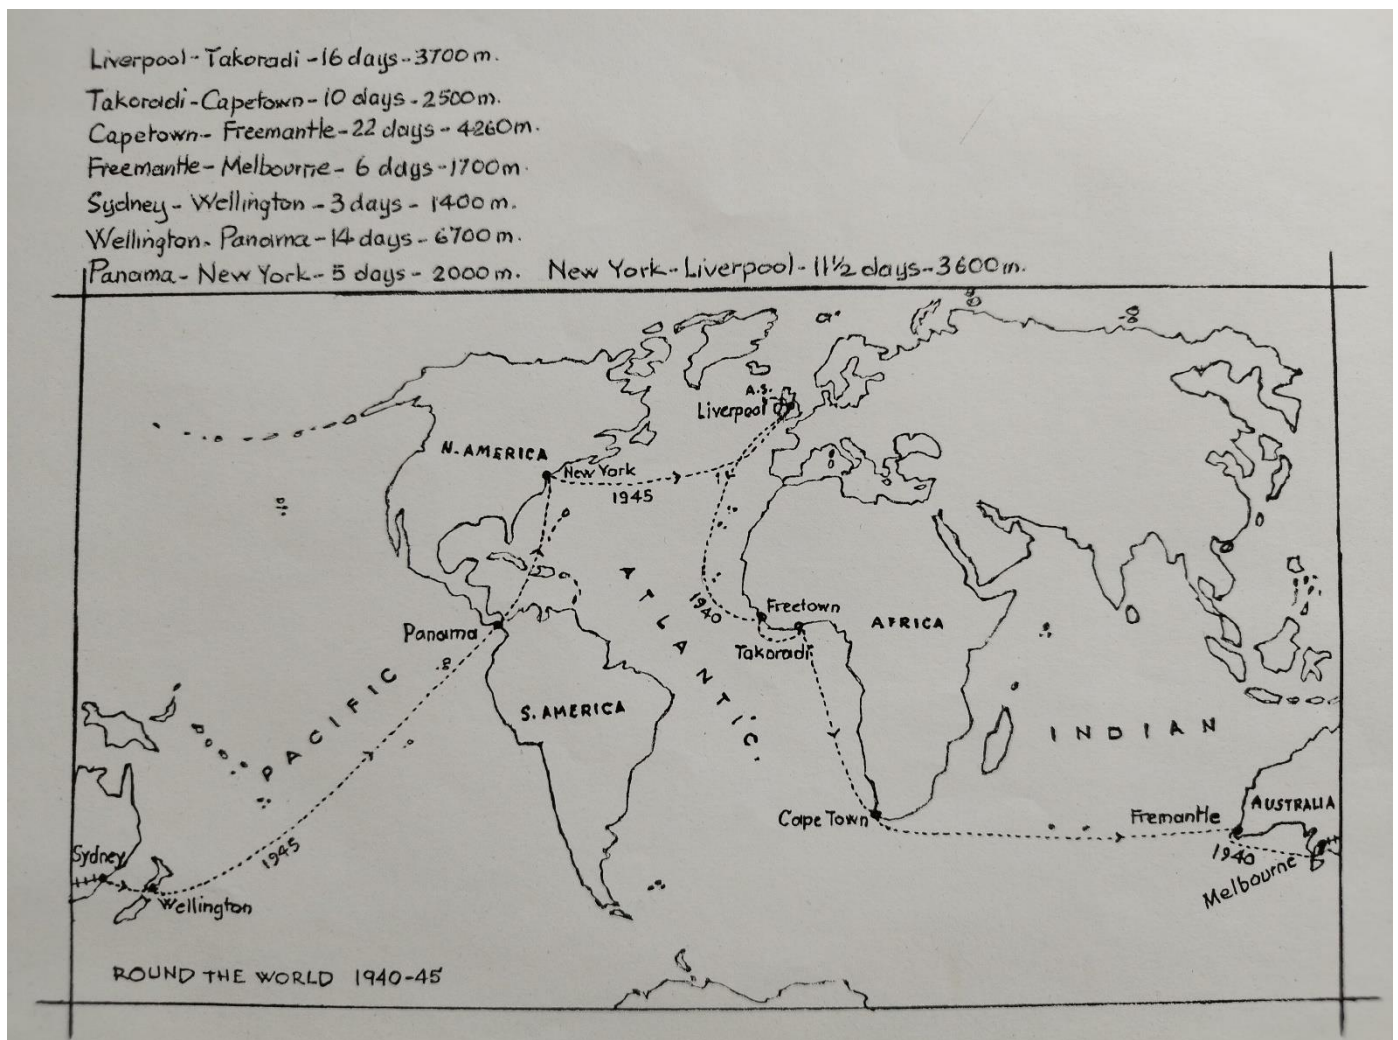 Liverpool - Takoradi - 16 days - 3700 m.
Takoradi - Capetown - 10 days - 2500 m.
Capetown - Freemantle - 22 days - 4260 m.
Freemantle - Melbourne - 6 days - 1700 m.
Sydney - Wellington - 3 days - 1400 m.
Wellington - Panama - 14 days - 6700 m.
Panama - New York - 5 days - 2000 m. New York - Liverpool - 11½ days - 3600 m.
A.S.
Liverpool
N. AMERICA
New York
1945
ATLANTIC
1940
Freetown
Takoradi
AFRICA
Panama
PACIFIC
S. AMERICA
INDIAN
Cape Town
Fremantle
AUSTRALIA
1940
Melbourne
Sydney
1945
Wellington
ROUND THE WORLD 1940-45